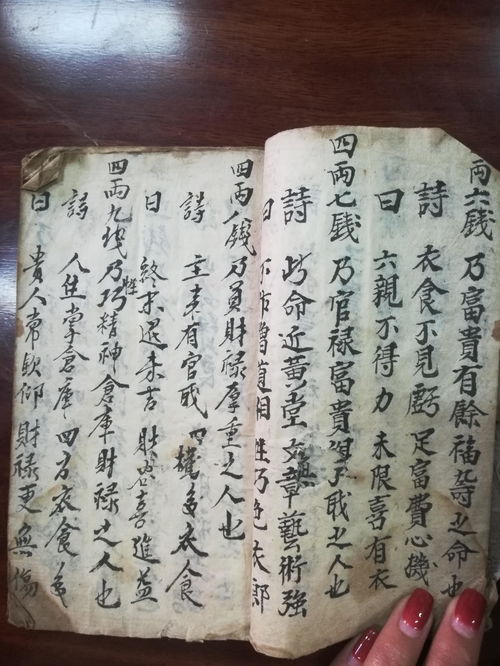 兩六錢 乃富貴有餘福壽之命也
詩 衣食不見虧 足富費心機
曰 六親不得力 未限喜有衣
四兩七錢 乃官禄富貴之人也
詩 此命近黃堂 文章藝術強
曰 不作僧道相
四兩八錢 乃員財禄厚重之人也
詩 主来有官 權多衣食
曰 終末還未吉 財帛喜進益
四兩九錢 乃巧性精神倉庫財禄之人也
詩 人生掌倉庫 四方衣食多
曰 貴人常欽仰 財禄更無傷